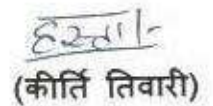 हस्ता/-
(कीर्ति तिवारी)